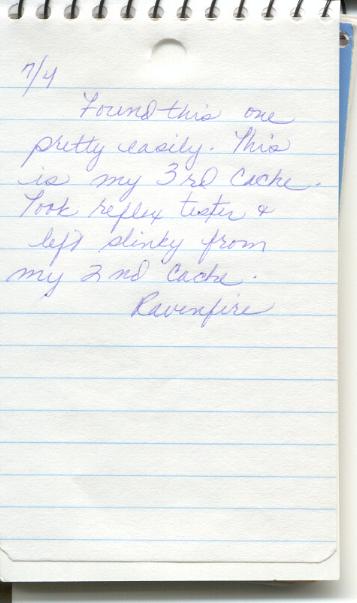 7/4
Found this one
pretty easily. This
is my 3rd Cache.
Took reflex tester &
left slinky from
my 2nd Cache.
Ravenfire